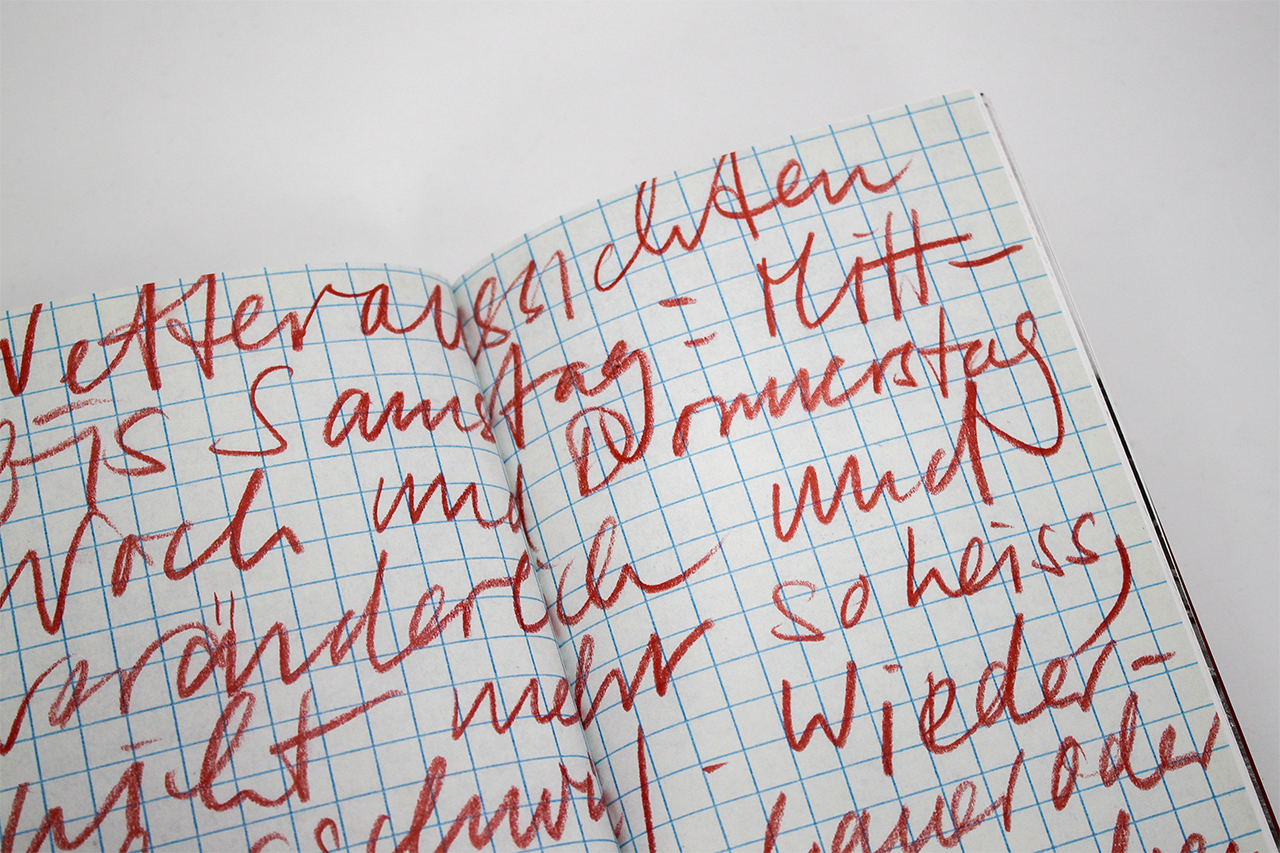 Wetteraussichten
bis Samstag = Mitt-
Woch und Donnerstag
veränderlich und
nicht mehr so heiss,
schwul - Wieder-
hauer oder